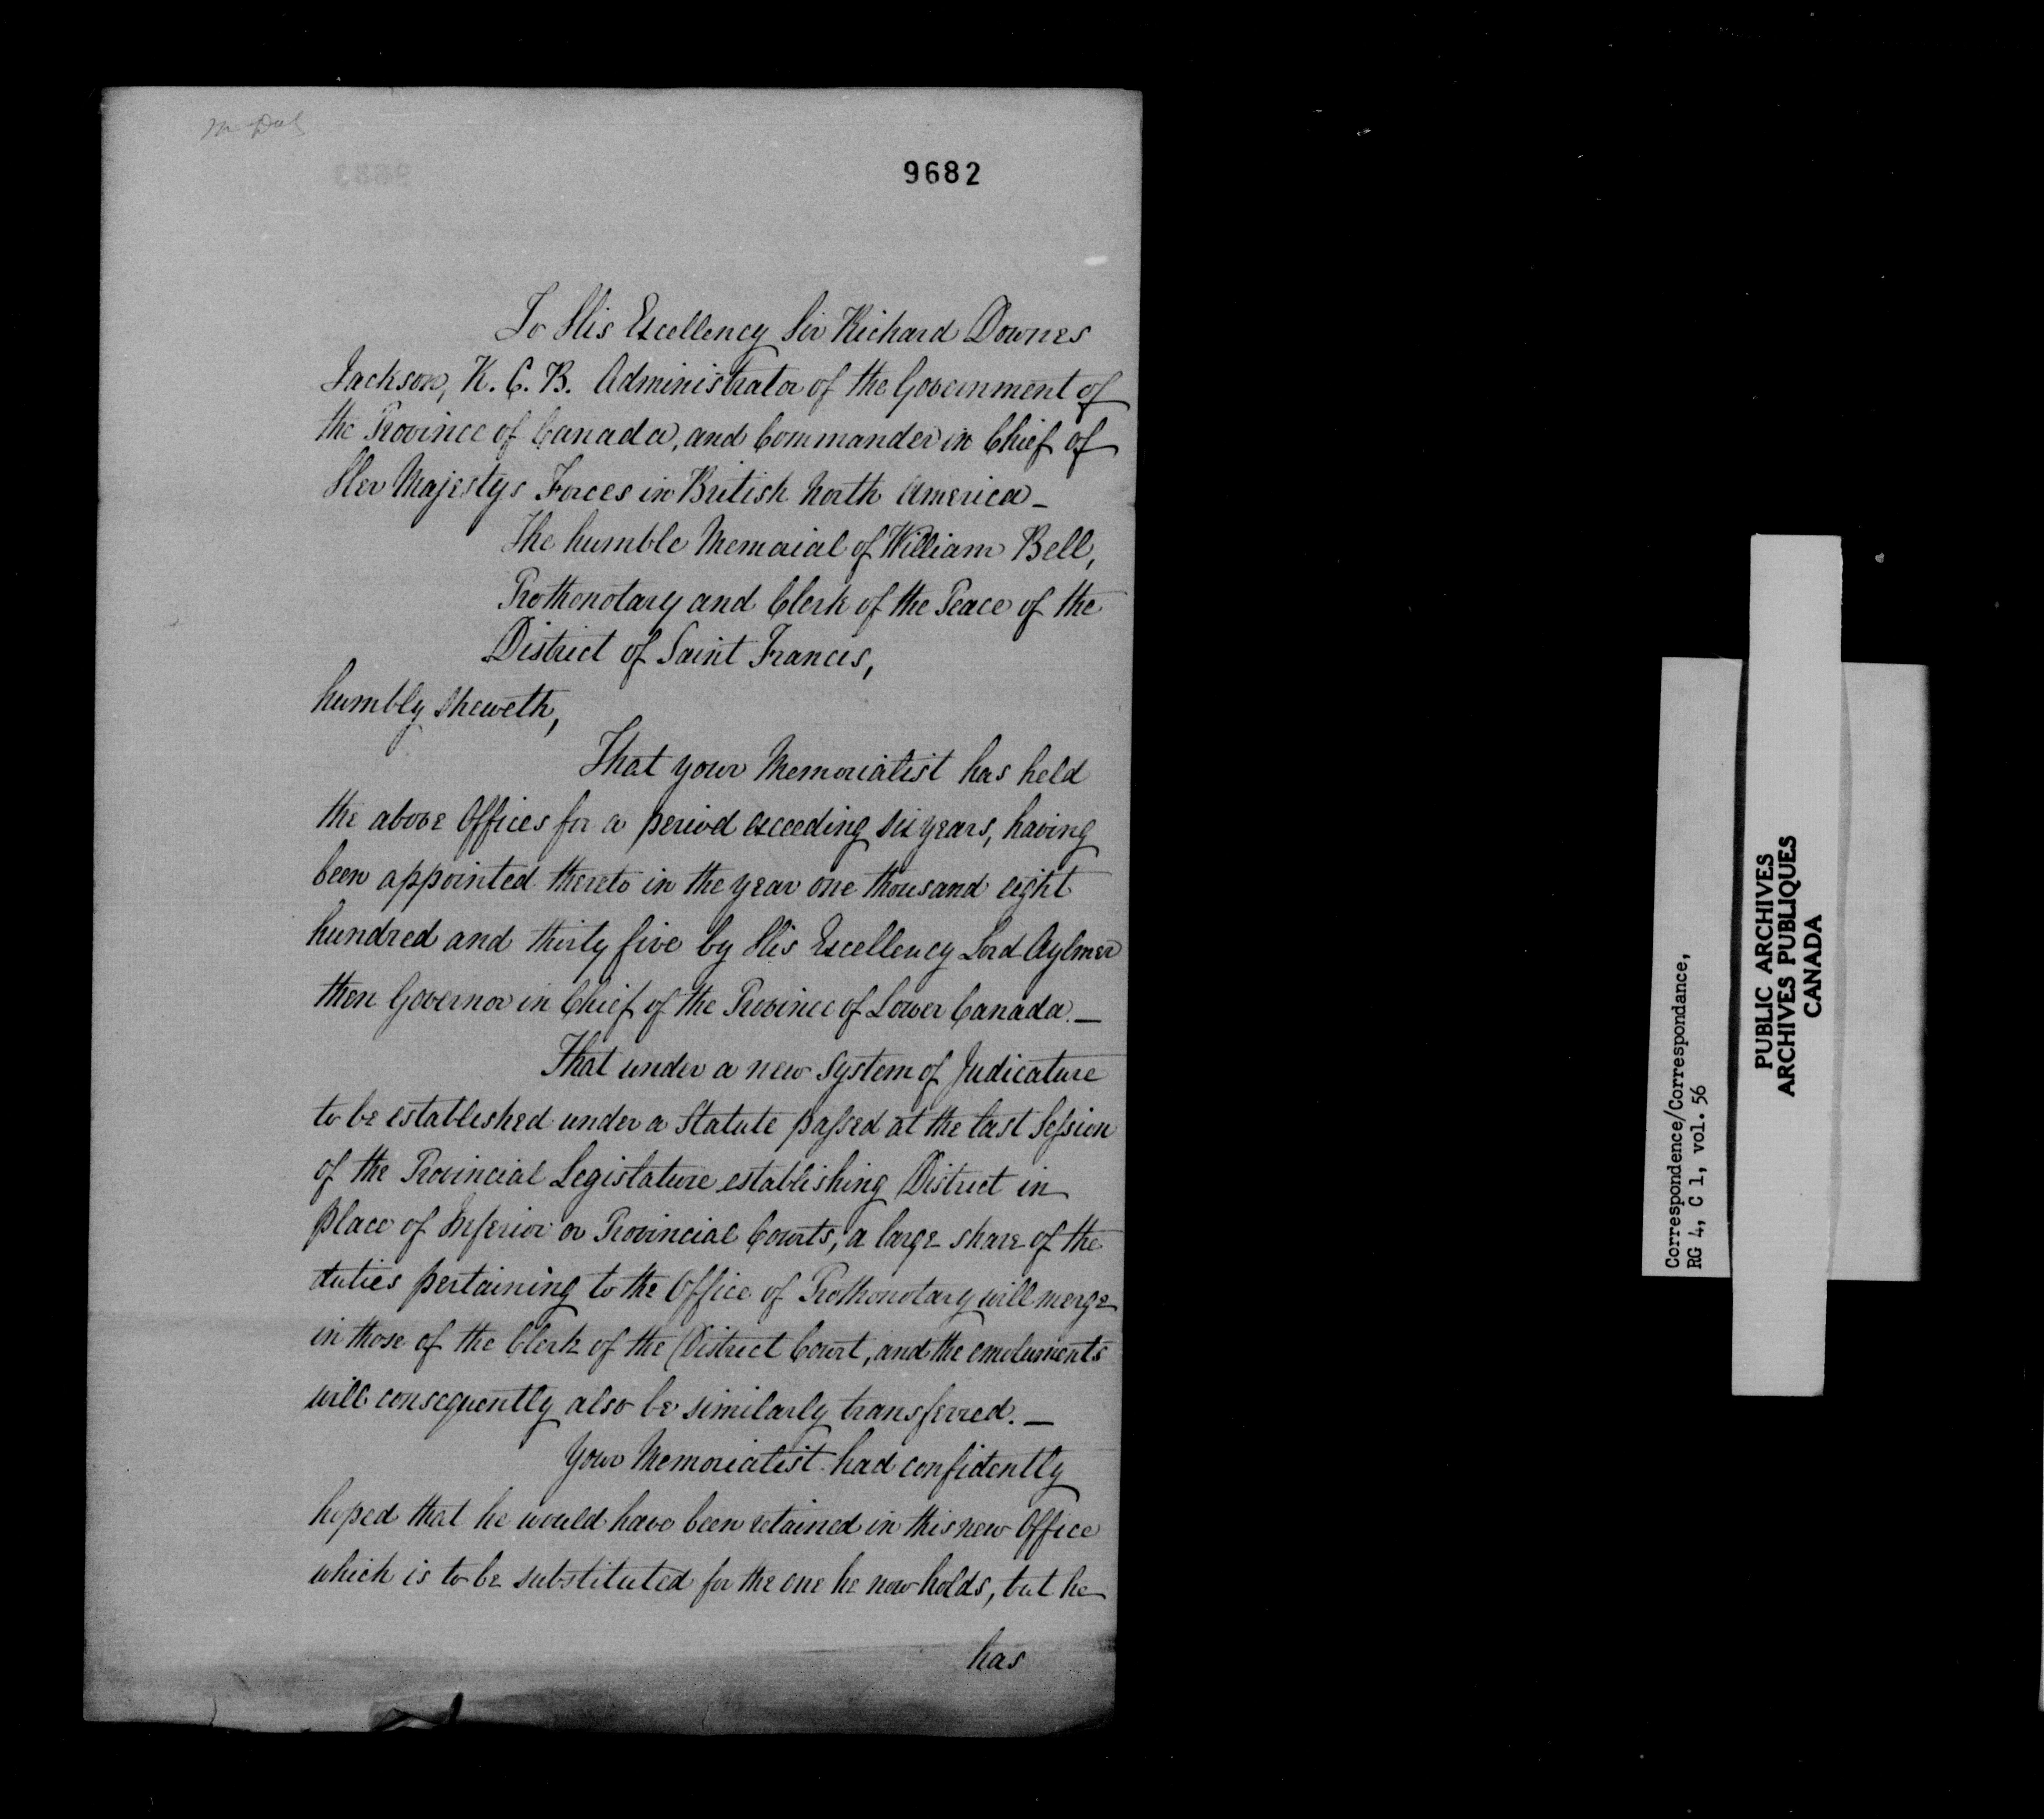 9682
To His Excellency Sir Richard Downes
Jackson, K. C. B. Administrator of the Government of
the Province of Canada, and Commander in Chief of
Her Majestys Forces in British North America _
The humble Memorial of William Bell,
Prothonotary and Clerk of the Peace of the
District of Saint Francis,
humbly sheweth,
That your Memorialist has held
the above Offices for a period exceeding six years, having
been appointed thereto in the year one thousand eight
hundred and thirty five by His Excellency Lord Aylmer
then Governor in Chief of the Province of Lower Canada. _
That under a new System of Judicature
to be established under a Statute passed at the last Session
of the Provincial Legislature establishing District in
place of Inferior or Provincial Courts, a large share of the
duties pertaining to the Office of Prothonotary will merge
in those of the Clerk of the District Court, and the emoluments
will consequently also be similarly transferred. _
Your Memorialist had confidently
hoped that he would have been retained in this new Office
which is to be substituted for the one he now holds, but he
has
Correspondence/Correspondance,
RG 4, C 1, vol. 56
PUBLIC ARCHIVES
ARCHIVES PUBLIQUES
CANADA